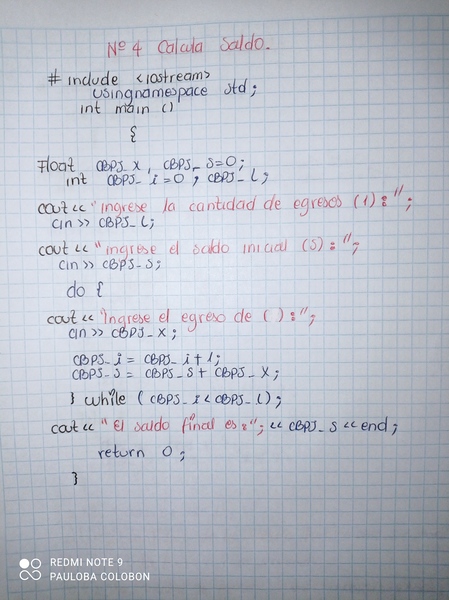 Nº 4 Calcula Saldo.
# include <iostream>
usingnamespace std;
int main ()
{
Float CBPS_x, CBPS_s=0;
int CBPS_i=0, CBPS_L;
cout<< "ingrese la cantidad de egresos (1):";
cin>> CBPS_L;
cout<< "ingrese el saldo inicial (S):";
cin>> CBPS_s;
do {
cout<< "Ingrese el egreso de ( ):";
cin>> CBPS_x;
CBPS_i = CBPS_i+1;
CBPS_s = CBPS_s + CBPS_x;
} while (CBPS_i<CBPS_L);
cout<< "El saldo final es:"; << CBPS_s <<end;
return 0;
}
REDMI NOTE 9
PAULOBA COLOBON